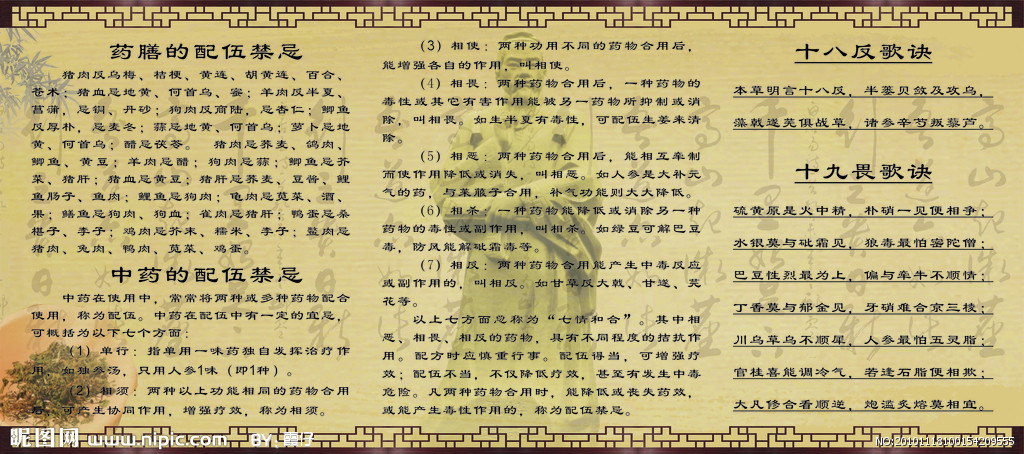 药膳的配伍禁忌
猪肉反乌梅、桔梗、黄连、胡黄连、百合、
苍术；猪血忌地黄、何首乌、蜜；羊肉反半夏、
菖蒲，忌铜、丹砂；狗肉反商陆，忌杏仁；鲫鱼
反厚朴，忌麦冬；蒜忌地黄、何首乌；萝卜忌地
黄、何首乌；醋忌茯苓。 猪肉忌荞麦、鸽肉、
鲫鱼、黄豆；羊肉忌醋；狗肉忌蒜；鲫鱼忌芥
菜、猪肝；猪血忌黄豆；猪肝忌荞麦、豆酱、鲤
鱼肠子、鱼肉；鲤鱼忌狗肉；龟肉忌苋菜、酒、
果；鳝鱼忌狗肉、狗血；雀肉忌猪肝；鸭蛋忌桑
椹子、李子；鸡肉忌芥末、糯米、李子；鳖肉忌
猪肉、兔肉、鸭肉、苋菜、鸡蛋。
中药的配伍禁忌
中药在使用中，常常将两种或多种药物配合
使用，称为配伍。中药在配伍中有一定的宜忌，
可概括为以下七个方面：
（1）单行：指单用一味药独自发挥治疗作
用。如独参汤，只用人参1味（即1种）。
（2）相须：两种以上功能相同的药物合用
后，可产生协同作用，增强疗效，称为相须。
（3）相使：两种功用不同的药物合用后，
能增强各自的作用，叫相使。
（4）相畏：两种药物合用后，一种药物的
毒性或其它有害作用能被另一药物所抑制或消
除，叫相畏。如生半夏有毒性，可配伍生姜来消
除。
（5）相恶：两种药物合用后，能相互牵制
而使作用降低或消失，叫相恶。如人参是大补元
气的药，与莱菔子合用，补气功能则大大降低。
（6）相杀：一种药物能降低或消除另一种
药物的毒性或副作用，叫相杀。如绿豆可解巴豆
毒，防风能解砒霜毒等。
（7）相反：两种药物合用能产生中毒反应
或副作用的，叫相反。如甘草反大戟、甘遂、芫
花等。
以上七方面总称为“七情和合”。其中相
恶、相畏、相反的药物，具有不同程度的拮抗作
用。配方时应慎重行事。配伍得当，可增强疗
效；配伍不当，不仅降低疗效，甚至有发生中毒
危险。凡两种药物合用时，能降低或丧失药效，
或能产生毒性作用的，称为配伍禁忌。
十八反歌诀
本草明言十八反，半蒌贝蔹及攻乌，
藻戟遂芫俱战草，诸参辛芍叛藜芦。
十九畏歌诀
硫黄原是火中精，朴硝一见便相争；
水银莫与砒霜见，狼毒最怕密陀僧；
巴豆性烈最为上，偏与牵牛不顺情；
丁香莫与郁金见，牙硝难合京三棱；
川乌草乌不顺犀，人参最怕五灵脂；
官桂喜能调冷气，若逢石脂便相欺；
大凡修合看顺逆，炮滥炙煿莫相宜。
昵图网 www.nipic.com BY:霞仔
NO:20101118100154209555